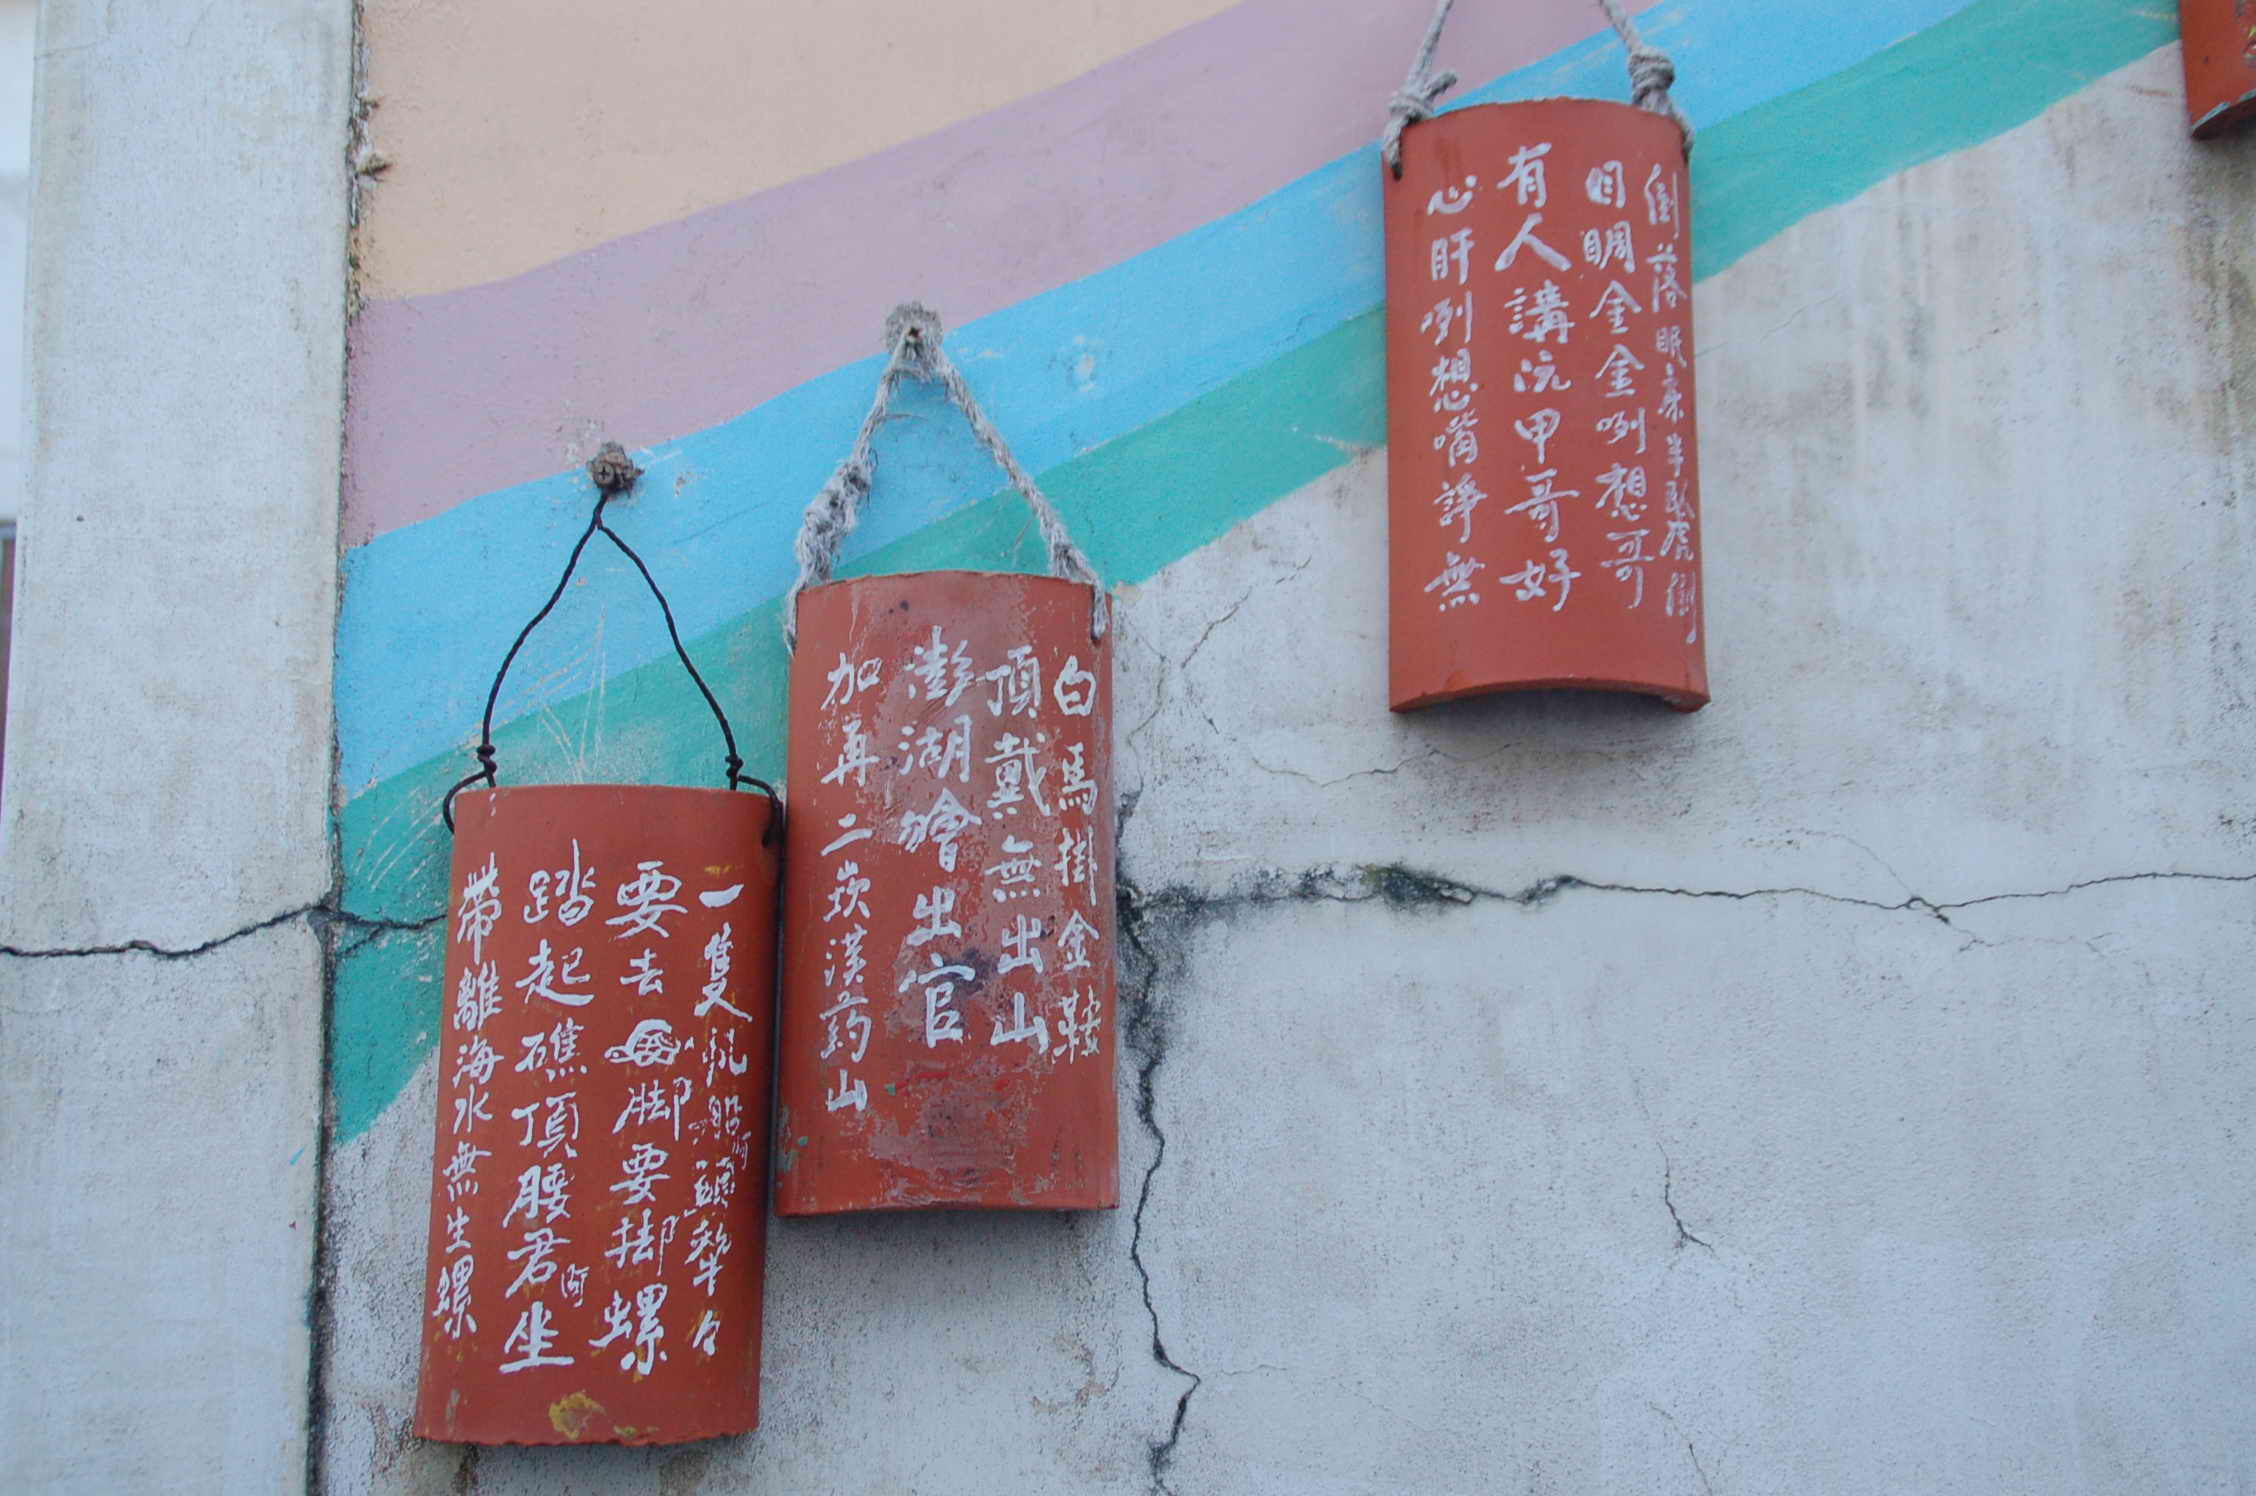 倒落眠床半臥虎倒
目睭金金咧想哥
有人講沅甲哥好
心肝咧想嘴諍無
白馬掛金鞍
頂戴無出山
澎湖𣍐出官
加再二崁漢葯山
一隻船阿頭犂々
要去脚要螺
踏起礁頂腰君阿坐
帶離海水無生螺